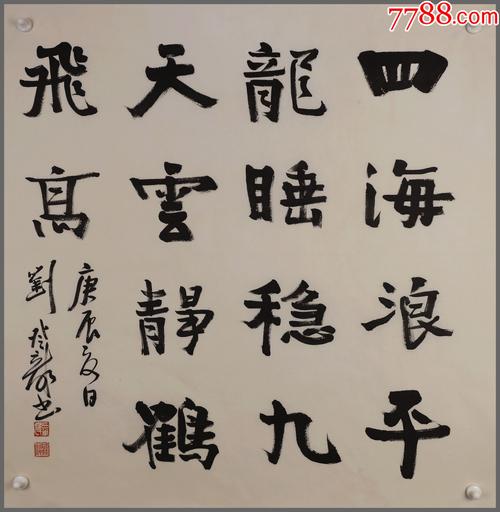 7788.com
四海浪平
龍睡稳九
天雲靜鶴
飛高
庚辰夏日
劉
书